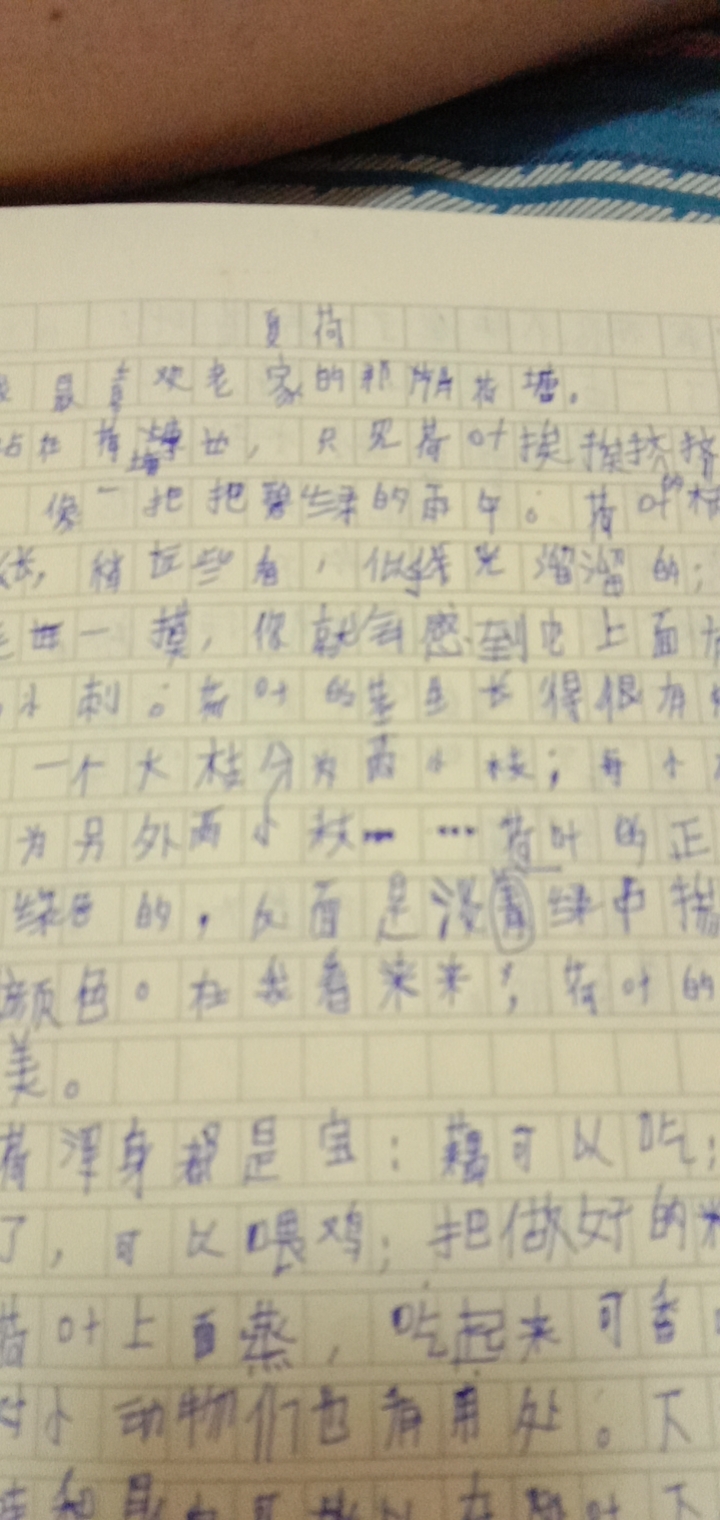 夏荷
最喜欢老家的那片荷塘。
站在荷塘边，只见荷叶挨挨挤挤
像一把把碧绿的雨伞。荷叶的
长，稍近些看，似乎光溜溜的；
一摸，你就会感到它上面有
小刺。荷叶的茎长得很有
一个大枝分为两小枝；每小
为另外两小枝……荷叶的正
绿色的，反面是浅绿中
颜色。在我看来，荷叶的
美。
荷浑身都是宝：藕可以吃；
了，可以喂鸡；把做好的米
荷叶上面蒸，吃起来可香
对小动物们也有用处。下
叶下